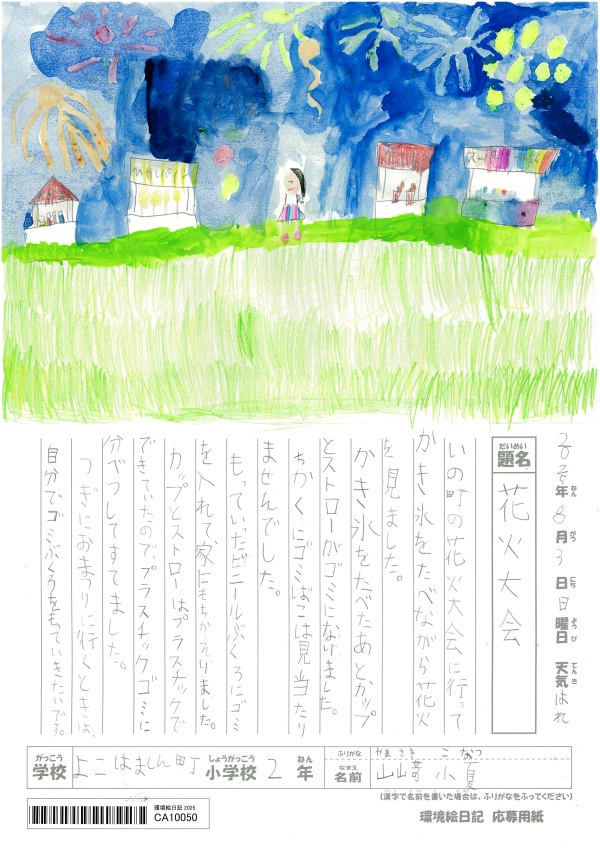 ひやしパイン
スーパーボールすくい
2025年8月3日日曜日 天気はれ
ねん がつ にち ようび てんき
だいめい
題名 花火大会
いの町の花火大会に行って
かき氷をたべながら花火
を見ました。
かき氷をたべたあとカップ
とストローがゴミになりました。
ちかくにゴミばこは見当たり
ませんでした。
もっていったビニールぶくろにゴミ
を入れて、家にもちかえりました。
カップとストローはプラスチックで
できていたので、プラスチックゴミに
分べつしてすてました。
つぎにおまつりに行くときは、
自分でゴミぶくろをもっていきたいです。
がっこう しょうがっこう ねん
学校 よこはましん町 小学校 2年
ふりがな やまさき こなつ
なまえ
名前 山崎 小夏
(漢字で名前を書いた場合は、ふりがなをふってください)
環境絵日記 2025
CA10050
環境絵日記 応募用紙